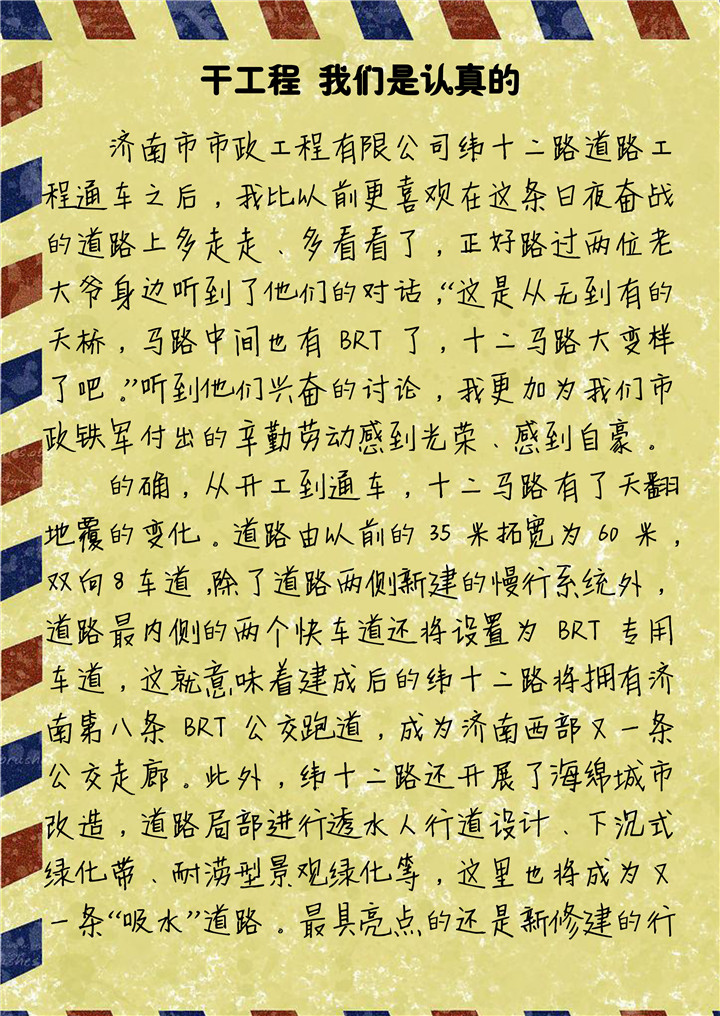 干工程 我们是认真的
济南市市政工程有限公司纬十二路道路工
程通车之后，我比以前更喜欢在这条日夜奋战
的道路上多走走、多看看了，正好路过两位老
大爷身边听到了他们的对话，“这是从无到有的
天桥，马路中间也有 BRT 了，十二马路大变样
了吧。”听到他们兴奋的讨论，我更加为我们市
政铁军付出的辛勤劳动感到光荣、感到自豪。
的确，从开工到通车，十二马路有了天翻
地覆的变化。道路由以前的 35 米拓宽为 60 米，
双向8车道，除了道路两侧新建的慢行系统外，
道路最内侧的两个快车道还将设置为 BRT 专用
车道，这就意味着建成后的纬十二路将拥有济
南第八条 BRT 公交跑道，成为济南西部又一条
公交走廊。此外，纬十二路还开展了海绵城市
改造，道路局部进行透水人行道设计、下沉式
绿化带、耐涝型景观绿化等，这里也将成为又
一条“吸水”道路。最具亮点的还是新修建的行